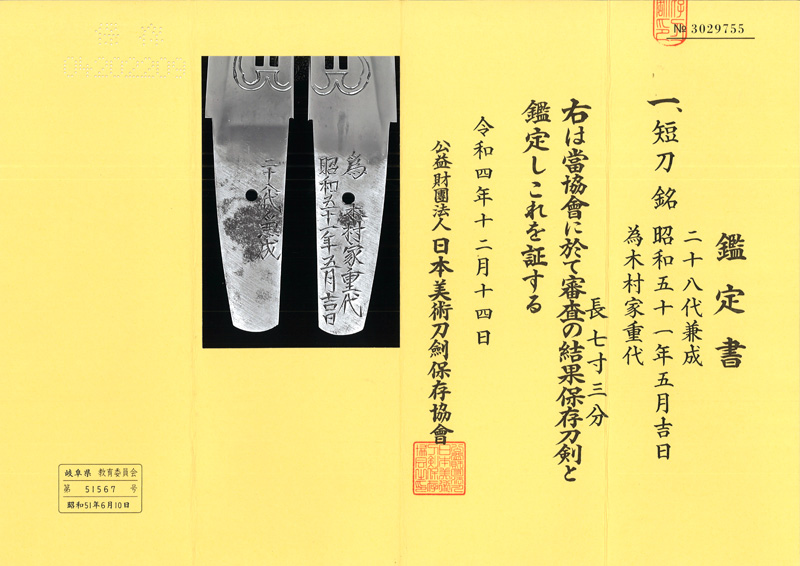 № 3029755
鑑定書
一、短刀 銘
二十八代兼成
昭和五十一年五月吉日
為木村家重代
長 七寸三分
右は當協會に於て審査の結果保存刀剣と
鑑定しこれを証する
令和四年十二月十四日
公益財團法人 日本美術刀劍保存協會
為 木村家重代
昭和五十一年五月吉日
二十八代兼成
岐阜県 教育委員会
第 51567 号
昭和51年6月10日